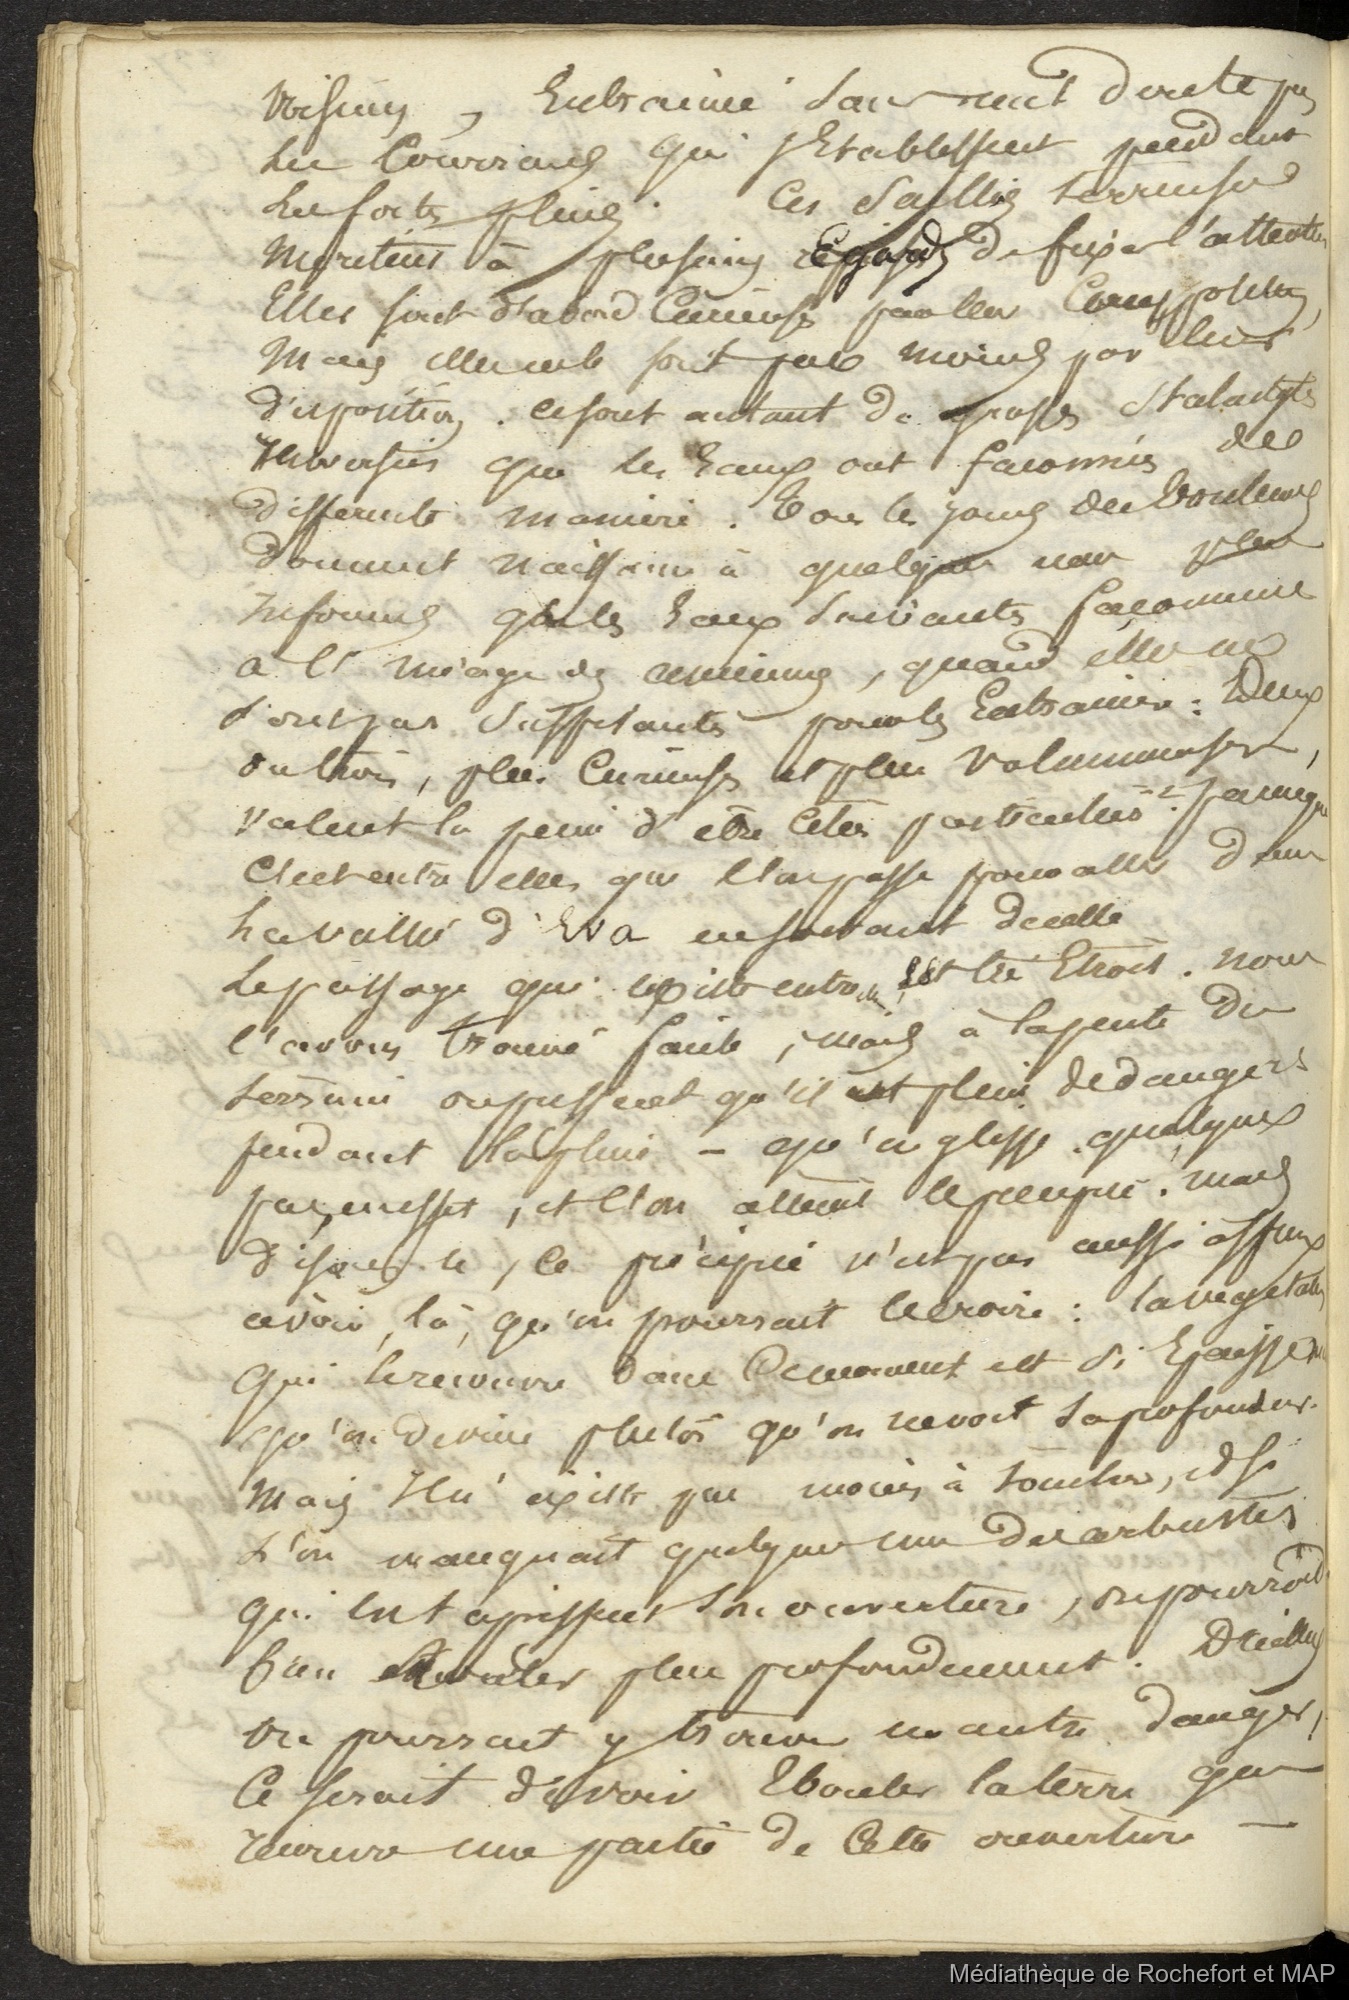 voisins, Entrainée sans nul doute par
les Courrians qui s'Etablissent pendant
les fortes pluies. Ces Saillies terreuses
Meritent à plusieurs Egards de fixer l'attention
Elles sont d'abord Curieuses par leur Composition,
Mais elles ne le sont pas moins par leur
disposition. ce sont autant de grosses Stalactytes
Renversées que les Eaux ont façonnées de
differente maniere. Tous les jours des Eboulemens
donnent naissance à quelques unes plus
Informes que les Eaux suivantes façonnent
a l'image des anciennes, quand elles ne
sont pas suffisantes pour les Entrainer : Deux
ou trois, plus Curieuses et plus volumineuses,
valent la peine d'être citées particulierᵗ. parceque
C'est entre elles que l'on passe pour aller dans
la vallée d'Eva en sortant de celle
Le passage qui existe entre elles Est très Etroit. nous
l'avons trouvé facile, mais à la pente du
terrain on pressent qu'il est plein de dangers
pendant la pluie – qu'on glisse quelques
pas, en effet, et l'on atteint le precipice. mais
disons-le, ce précipice n'est pas aussi affreux
à voir, là, qu'on pourrait le croire : la vegetation
qui le recouvre dans ce moment est si Epaisse
qu'on devine plutôt qu'on ne voit sa profondeur.
Mais Il n'existe pas moins à toucher, et si
l'on manquait quelques uns des arbustes
qui en tapissent son ouverture, on pourrait
bien rouler plus profondement. D'ailleurs
on pourrait y trouver un autre danger,
Ce serait de voir Ebouler la terre qui
recouvre une partie de Cette ouverture –
Médiathèque de Rochefort et MAP